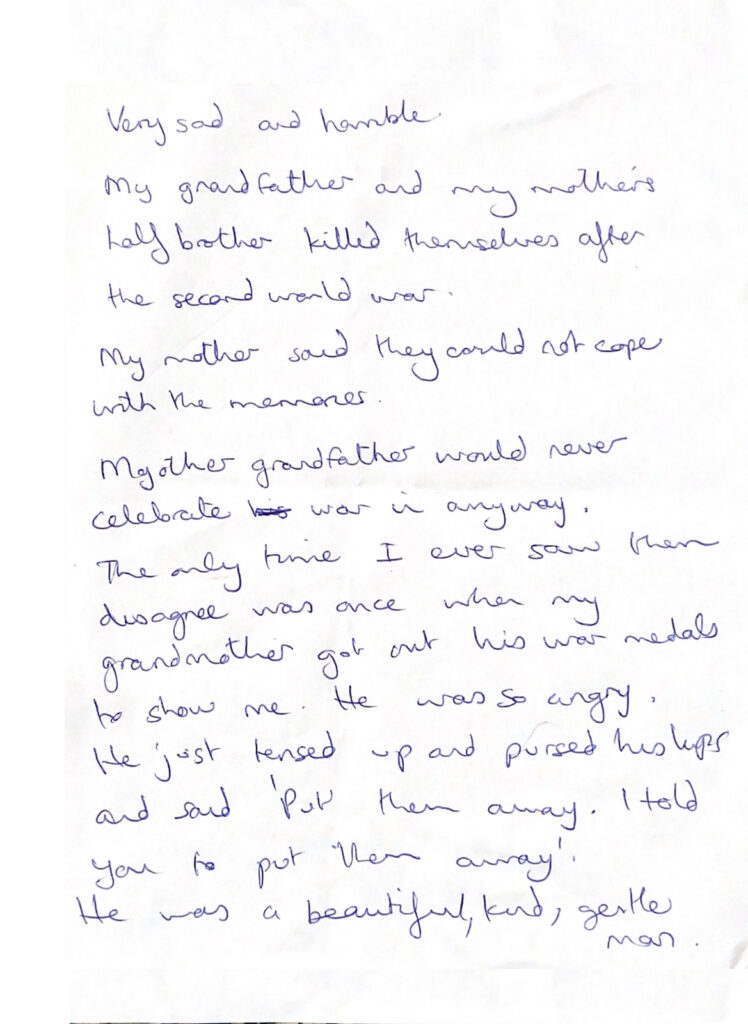 Very sad and horrible
My grandfather and my mother's
half brother killed themselves after
the second world war.
My mother said they could not cope
with the memories.
My other grandfather would never
celebrate his war in anyway.
The only time I ever saw them
disagree was once when my
grandmother got out his war medals
to show me. He was so angry.
He just tensed up and pursed his lips
and said 'Put them away. I told
you to put them away'.
He was a beautiful, kind, gentle
man.